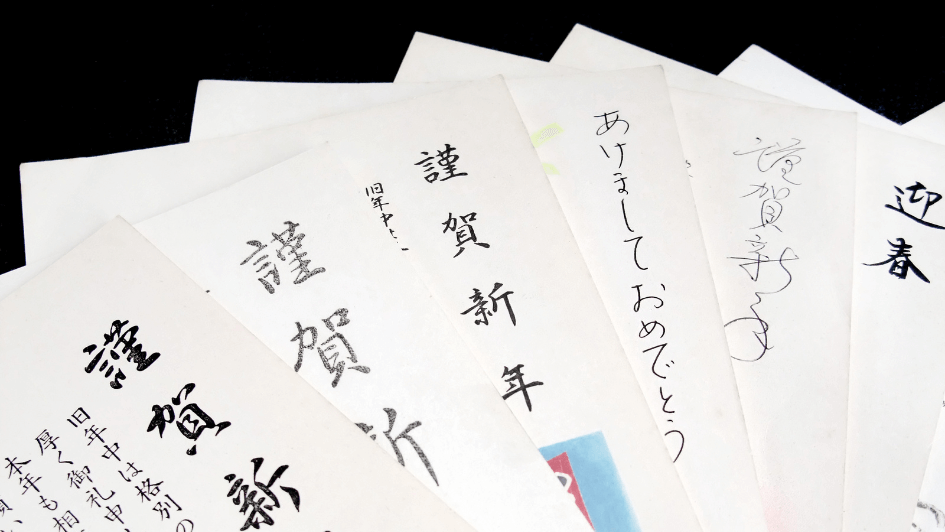 謹賀新
旧年中は格別の
厚く御礼申
本年も相
謹賀新
謹賀新年
旧年中
あけましておめでとう
謹賀新年
迎春